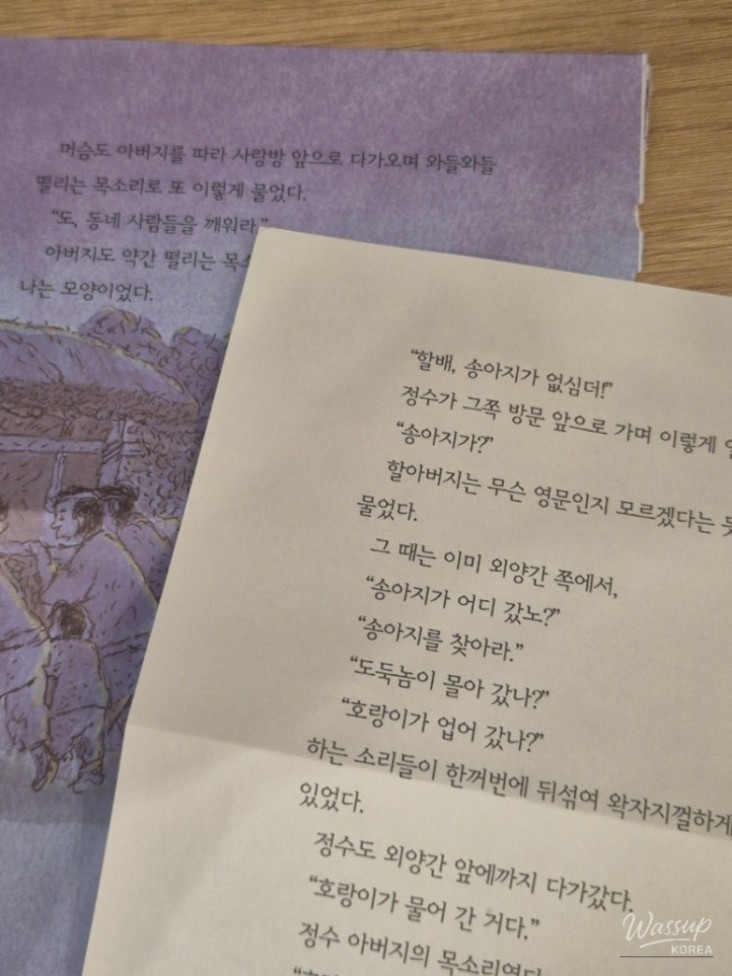 머슴도 아버지를 따라 사랑방 앞으로 다가오며 와들와들
떨리는 목소리로 또 이렇게 물었다.
“도, 동네 사람들을 깨워라.”
아버지도 약간 떨리는
나는 모양이었다.
“할배, 송아지가 없심더!”
정수가 그쪽 방문 앞으로 가며 이렇게
“송아지가?”
할아버지는 무슨 영문인지 모르겠다는
물었다.
그 때는 이미 외양간 쪽에서,
“송아지가 어디 갔노?”
“송아지를 찾아라.”
“도둑놈이 몰아 갔나?”
“호랑이가 업어 갔나?”
하는 소리들이 한꺼번에 뒤섞여 왁자지껄하게
있었다.
정수도 외양간 앞에까지 다가갔다.
“호랑이가 물어 간 거다.”
정수 아버지의 목소리였다
Wassup
KOREA